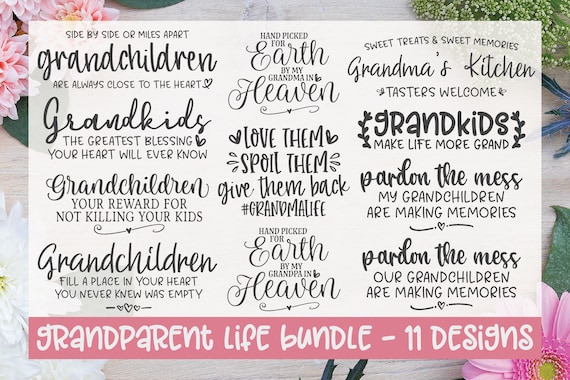 SIDE BY SIDE OR MILES APART
grandchildren
ARE ALWAYS CLOSE TO THE HEART
Grandkids
THE GREATEST BLESSING
YOUR HEART WILL EVER KNOW
Grandchildren
YOUR REWARD FOR
NOT KILLING YOUR KIDS
Grandchildren
FILL A PLACE IN YOUR HEART
YOU NEVER KNEW WAS EMPTY
HAND PICKED
FOR
Earth
BY MY
GRANDMA IN
Heaven
LOVE THEM
SPOIL THEM
give them back
#GRANDMALIFE
HAND PICKED
FOR
Earth
BY MY
GRANDPA IN
Heaven
SWEET TREATS & SWEET MEMORIES
Grandma's Kitchen
TASTERS WELCOME
GRANDKIDS
MAKE LIFE MORE GRAND
pardon the mess
MY GRANDCHILDREN
ARE MAKING MEMORIES
pardon the mess
OUR GRANDCHILDREN
ARE MAKING MEMORIES
GRANDPARENT LIFE BUNDLE - 11 DESIGNS